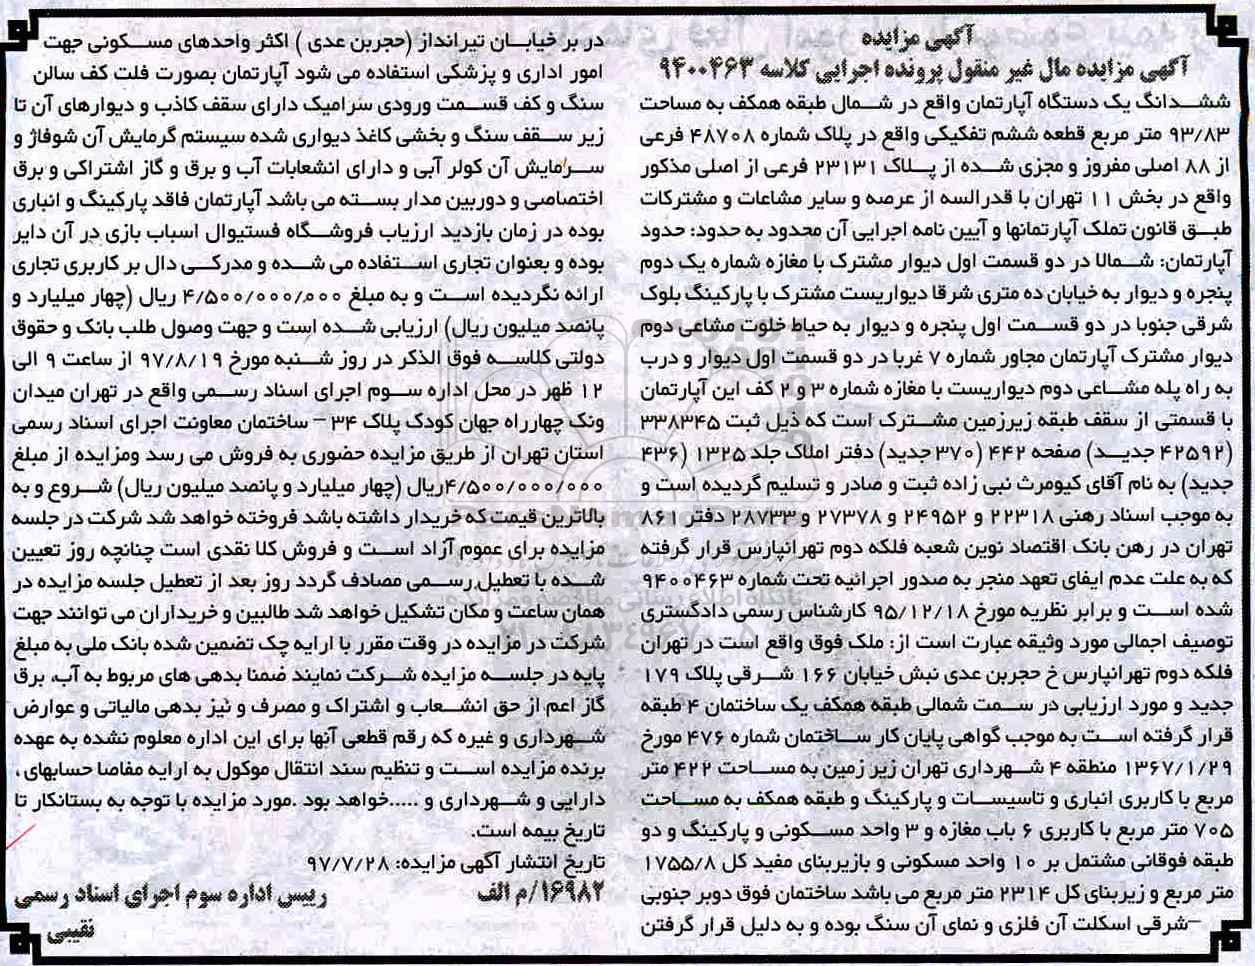 آگهی مزایده
آگهی مزایده مال غیر منقول پرونده اجرایی کلاسه ۹۴۰۰۴۶۳
ششدانگ یک دستگاه آپارتمان واقع در شمال طبقه همکف به مساحت
۹۳/۸۳ متر مربع قطعه ششم تفکیکی واقع در پلاک شماره ۴۸۷۰۸ فرعی
از ۸۸ اصلی مفروز و مجزی شده از پلاک ۲۳۱۳۱ فرعی از اصلی مذکور
واقع در بخش ۱۱ تهران با قدرالسه از عرصه و سایر مشاعات و مشترکات
طبق قانون تملک آپارتمانها و آیین نامه اجرایی آن محدود به حدود: حدود
آپارتمان: شمالا در دو قسمت اول دیوار مشترک با مغازه شماره یک دوم
پنجره و دیوار به خیابان ده متری شرقا دیواریست مشترک با پارکینگ بلوک
شرقی جنوبا در دو قسمت اول پنجره و دیوار به حیاط خلوت مشاعی دوم
دیوار مشترک آپارتمان مجاور شماره ۷ غربا در دو قسمت اول دیوار و درب
به راه پله مشاعی دوم دیواریست با مغازه شماره ۳ و ۲ کف این آپارتمان
با قسمتی از سقف طبقه زیرزمین مشترک است که ذیل ثبت ۳۳۸۳۴۵
(۴۲۵۹۲ جدید) صفحه ۴۴۲ (۳۷۰ جدید) دفتر املاک جلد ۱۳۲۵ (۴۳۶
جدید) به نام آقای کیومرث نبی زاده ثبت و صادر و تسلیم گردیده است و
به موجب اسناد رهنی ۲۲۳۱۸ و ۲۴۹۵۲ و ۲۷۳۷۸ و ۲۸۷۳۳ دفتر ۸۶۱
تهران در رهن بانک اقتصاد نوین شعبه فلکه دوم تهرانپارس قرار گرفته
که به علت عدم ایفای تعهد منجر به صدور اجرائیه تحت شماره ۹۴۰۰۴۶۳
شده است و برابر نظریه مورخ ۹۵/۱۲/۱۸ کارشناس رسمی دادگستری
توصیف اجمالی مورد وثیقه عبارت است از: ملک فوق واقع است در تهران
فلکه دوم تهرانپارس خ حجربن عدی نبش خیابان ۱۶۶ شرقی پلاک ۱۷۹
جدید و مورد ارزیابی در سمت شمالی طبقه همکف یک ساختمان ۴ طبقه
قرار گرفته است به موجب گواهی پایان کار ساختمان شماره ۴۷۶ مورخ
۱۳۶۷/۱/۲۹ منطقه ۴ شهرداری تهران زیر زمین به مساحت ۴۲۲ متر
مربع با کاربری انباری و تاسیسات و پارکینگ و طبقه همکف به مساحت
۷۰۵ متر مربع با کاربری ۶ باب مغازه و ۳ واحد مسکونی و پارکینگ و دو
طبقه فوقانی مشتمل بر ۱۰ واحد مسکونی و بازیربنای مفید کل ۱۷۵۵/۸
متر مربع و زیربنای کل ۲۳۱۴ متر مربع می باشد ساختمان فوق دوبر جنوبی
–شرقی اسکلت آن فلزی و نمای آن سنگ بوده و به دلیل قرار گرفتن
در بر خیابان تیرانداز (حجربن عدی ) اکثر واحدهای مسکونی جهت
امور اداری و پزشکی استفاده می شود آپارتمان بصورت فلت کف سالن
سنگ و کف قسمت ورودی سرامیک دارای سقف کاذب و دیوارهای آن تا
زیر سقف سنگ و بخشی کاغذ دیواری شده سیستم گرمایش آن شوفاژ و
سرمایش آن کولر آبی و دارای انشعابات آب و برق و گاز اشتراکی و برق
اختصاصی و دوربین مدار بسته می باشد آپارتمان فاقد پارکینگ و انباری
بوده در زمان بازدید ارزیاب فروشگاه فستیوال اسباب بازی در آن دایر
بوده و بعنوان تجاری استفاده می شده و مدرکی دال بر کاربری تجاری
ارائه نگردیده است و به مبلغ ۴/۵۰۰/۰۰۰/۰۰۰ ریال (چهار میلیارد و
پانصد میلیون ریال) ارزیابی شده است و جهت وصول طلب بانک و حقوق
دولتی کلاسه فوق الذکر در روز شنبه مورخ ۹۷/۸/۱۹ از ساعت ۹ الی
۱۲ ظهر در محل اداره سوم اجرای اسناد رسمی واقع در تهران میدان
ونک چهارراه جهان کودک پلاک ۳۴ – ساختمان معاونت اجرای اسناد رسمی
استان تهران از طریق مزایده حضوری به فروش می رسد ومزایده از مبلغ
۴/۵۰۰/۰۰۰/۰۰۰ریال (چهار میلیارد و پانصد میلیون ریال) شروع و به
بالاترین قیمت که خریدار داشته باشد فروخته خواهد شد شرکت در جلسه
مزایده برای عموم آزاد است و فروش کلا نقدی است چنانچه روز تعیین
شده با تعطیل رسمی مصادف گردد روز بعد از تعطیل جلسه مزایده در
همان ساعت و مکان تشکیل خواهد شد طالبین و خریداران می توانند جهت
شرکت در مزایده در وقت مقرر با ارایه چک تضمین شده بانک ملی به مبلغ
پایه در جلسه مزایده شرکت نمایند ضمنا بدهی های مربوط به آب، برق
گاز اعم از حق انشعاب و اشتراک و مصرف و نیز بدهی مالیاتی و عوارض
شهرداری و غیره که رقم قطعی آنها برای این اداره معلوم نشده به عهده
برنده مزایده است و تنظیم سند انتقال موکول به ارایه مفاصا حسابهای ،
دارایی و شهرداری و .....خواهد بود .مورد مزایده با توجه به بستانکار تا
تاریخ بیمه است.
تاریخ انتشار آگهی مزایده: ۹۷/۷/۲۸
۱۶۹۸۲/م الف
رییس اداره سوم اجرای اسناد رسمی
نقیبی